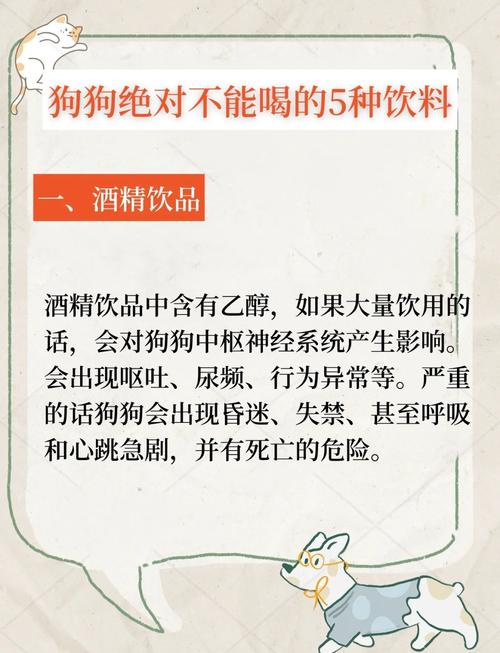 狗狗绝对不能喝的5种饮料
一、酒精饮品
酒精饮品中含有乙醇，如果大量饮用的
话，会对狗狗中枢神经系统产生影响。
会出现呕吐、尿频、行为异常等。严重
的话狗狗会出现昏迷、失禁、甚至呼吸
和心跳急剧，并有死亡的危险。